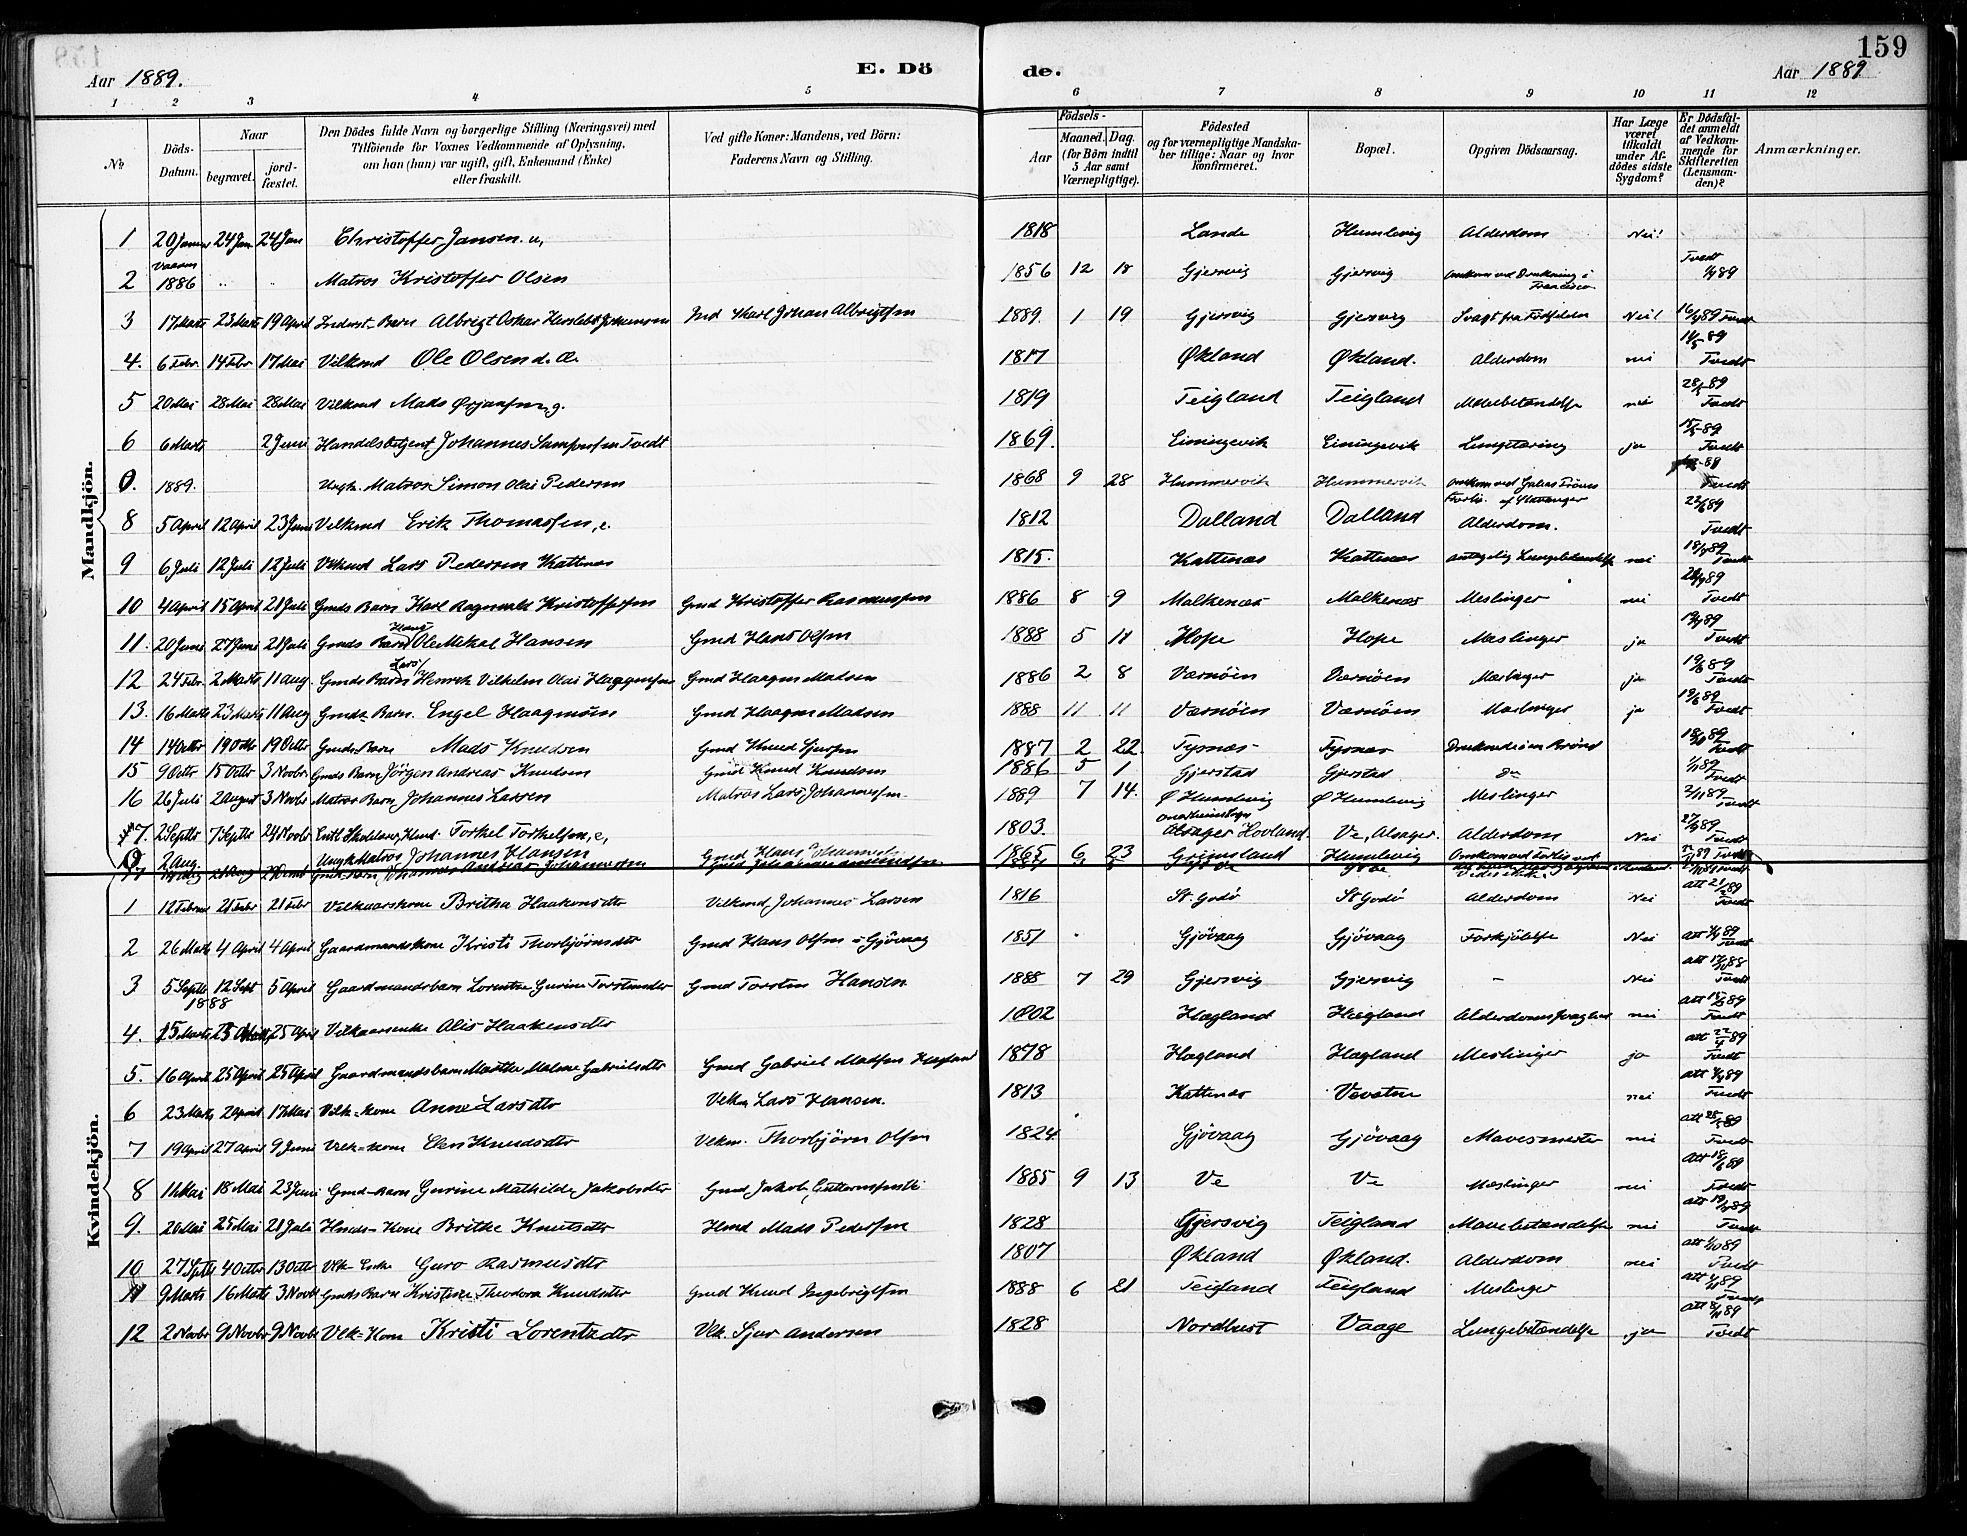 159
Aar 1889.
E. Dö
de.
Aar 1889
1 2 3 4 5 6 7 8 9 10 11 12
No
Döds-Datum.
Naar
begravet.
jord-fæstet.
Den Dödes fulde Navn og borgerlige Stilling (Næringsvei) med
Tilföiende for Voxnes Vedkommende af Oplysning,
om han (hun) var ugift, gift, Enkemand (Enke)
eller fraskilt.
Ved gifte Koner: Mandens, ved Börn:
Faderens Navn og Stilling.
Födsels-
Aar
Maaned. Dag.
(for Börn indtil
5 Aar samt
Værnepligtige).
Födested
og for værnepligtige Mandska-
ber tillige: Naar og hvor
konfirmeret.
Bopæl.
Opgiven Dödsaarsag.
Har Læge
været
tilkaldt
under Af-
dödes sidste
Sygdom?
Er Dödsfal-
det anmeldt
af Vedkom-
mende for
Skifteretten
(Lensman-
den)?
Anmærkninger.
Mandkjön.
1 20 Januar 24 Jan 24 Jan Christoffer Jansen. u, 1818 Lande Humlevig Alderdom Nei!
2 1886 Matros Kristoffer Olsen 1856 12 18 Gjersvig Gjersvig Omkom ved Drukning i Francisco Tvedt
3 17 Marts 23 Marts 19 April Inderst-Barn Albrigt Oskar Johansen Ind Karl Johan Albrigtsen 1889. 1 19 Gjersvig Gjersvig Svagt fra Födselen Nei! Tvedt
4. 6 Febr. 14 Febr 17 Mai Vilkmd Ole Olsen 1817 Økland Økland. Alderdom nei Tvedt
5 20 Mai 28 Mai 28 Mai Vilkmd Mads Ørjansen, g. 1819 Teigland Teigland Mavebetændelse nei Tvedt
6 6 Marts 2 Juni Handelsbetjent Johannes Samsonsen Tvedt 1869. Einingevik Einingevik Lungetæring ja Tvedt
1889. Ungk. Matros Simon Olai Pedersen 1868 9 28 Hummervik Hummervik Omkom ved Forlis. af Stavanger Tvedt
8 5 April 12 April 23 Juni Velkmd Erik Thomassen, e. 1812 Dalland Dalland Alderdom. Tvedt
9 6 Juli 12 Juli 12 Juli Vilkmd Lars Pedersen Kattnæs 1815. Kattenæs Kattnæs antagelig Lungebetændelse nei Tvedt
10 4 April 15 April 21 Juli Gmds Barn Karl Ragnvald Kristoffersen Gmd Kristoffer Rasmussen 1886 8 9 Malkenæs Malkenæs Meslinger nei Tvedt
11. 20 Juni 27 Juni 21 Juli Gmds Barn Ole Mikal Hansen Gmd Hans Olsen 1888 5 11 Hope Hope Meslinger ja Tvedt
12 24 Febr. 2 Marts 11 Aug. Gmds Barn Lars Henrik Vilhelm Olai Haagensen Gmd Haagen Madsen 1886 2 8 Værnöen Værnöen Meslinger ja Tvedt
13. 16 Marts 23 Marts 11 Aug Gmds Barn. Engel Haagensen Gmd Haagen Madsen 1888 11 11 Værnöen Værnöen Meslinger ja Tvedt
14 14 Octbr 19 Octbr 19 Octbr Gmds Barn Mads Knudsen Gmd Knud Sjursen 1887 2 22. Tysnæs Tysnæs Druknede i en Brönd Tvedt
15 9 Octbr 15 Octbr 3 Novbr. Gmds Barn Jörgen Andreas Knudsen Gmd Knud Knudsen 1886 5 1 Gjerstad Gjerstad do Tvedt
16 26 Juli 2 August 3 Novbr Matros Barn, Johannes Larsen Matros Lars Johannessen 1889 7 14. Ø Humlevig Ø Humlevig Meslinger Tvedt
17. 2 Septbr 7 Septbr 24 Novbr Torkel Torkelsen, e, 1803. Alsager Hovland. Ve, Alsager. Alderdom Nei Tvedt
2 Aug. Ungk Matros Johannes Hansen Gmd Hans 1865 6 23 Grimsland Humlevig Omkom ved Forlis Tvedt
Kvindekjön.
1 12 Februar 21 Febr 21 Febr Velkaarskone Britha Haakonsdtr Velkmd Johannes Larsen 1816 St Godö St Godö Alderdom Nei Tvedt
2 26 Marts 4 April 4 April Gaardmandskone Kristi Thorbjörnsdtr Gmd Hans Olsen i Gjövaag 1851 Gjövaag Gjövaag Forkjölelse Nei Tvedt
3 5 Septbr 12 Sept 5 April Gaardmandsbarn Lorentze Gurine Torstensdtr Gmd Torsten Hansen 1888 7 29 Gjersvig Gjersvig - Nei Tvedt
1888
4. 15 Marts 25 April Velkaarsenke Alis Haakensdtr 1802 Hægland Hægland Alderdomssvaghed nei Tvedt
5. 16 April 25 April 25 April Gaardmandsbarn Marthe Malene Gabrielsdtr Gmd Gabriel Madsen Hægland 1878 Hægland Hægland Meslinger ja Tvedt
6 23 Marts 2 April 17 Mai Vilk-Kone Anne Larsdtr Velkm Lars Hansen. 1813 Kattenes Vevatne nei Tvedt
7 19 April 27 April 9 Juni Velk-kone Elen Knudsdtr Velkm. Thorbjörn Olsen 1824 Gjövaag Gjövaag Mavesmerter nei Tvedt
8 11 Mai 18 Mai 23 Juni Gmd-Barn Gurine Mathilde Jakobsdtr Gmd Jakob Guttormsen 1885 9 13 Ve Ve Meslinger nei Tvedt
9. 20 Mai 25 Mai 21 Juli Hmds-Kone Britke Knutsdtr Hmd Mads Pedersen 1828 Gjersvig Teigland Mavebetændelse nei Tvedt
10 27 Septbr 4 Octbr 13 Octbr Velk-Enke Guro Rasmusdtr 1807 Økland Økland. Alderdom nei Tvedt
11 9 Marts 16 Marts 3 Novbr Gmds Barn Kristense Theodora Knudsdtr Gmd Knud Ingebrigtsen 1888 6 21 Teigland Teigland Meslinger Tvedt
12 2 Novbr 9 Novbr 9 Novbr Velk-Kone Kristi Lorentzdtr Vlk Sjur Andersen 1828 Nordhust Vaage Lungebetændelse ja Tvedt